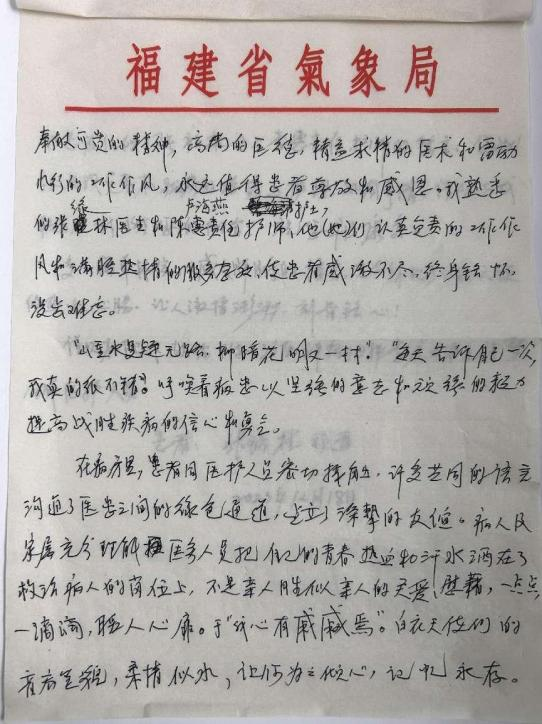 福建省氣象局
可贵的精神，高尚的医德，精益求精的医术和雷动
的工作作风，永远值得患者尊敬和感恩。我熟悉
绿 卢海燕
的张林医生和陈惠责任护师，他(她)们认真负责的工作作
风和满腔热情的服务态度，使患者感激不尽，终身铭怀，
没齿难忘。
"山重水复疑无路，柳暗花明又一村"。"每天告诉自己一次，
我真的很不错"。呼唤着病患以坚强的意志和顽强的毅力
提高战胜疾病的信心和勇气。
在病房里，患者同医护人员密切接触，许多共同的语言
沟通了医患之间的绿色通道，建立了深挚的友谊。病人及
家属充分理解医务人员把自己的青春热血和汗水洒在了
救治病人的岗位上，不是亲人胜似亲人的关爱、慰藉，一点点，
一滴滴，暖人心扉。于"我心有戚戚焉"。白衣天使们的
音容笑貌，柔情似水，让何为之倾心，记忆永存。